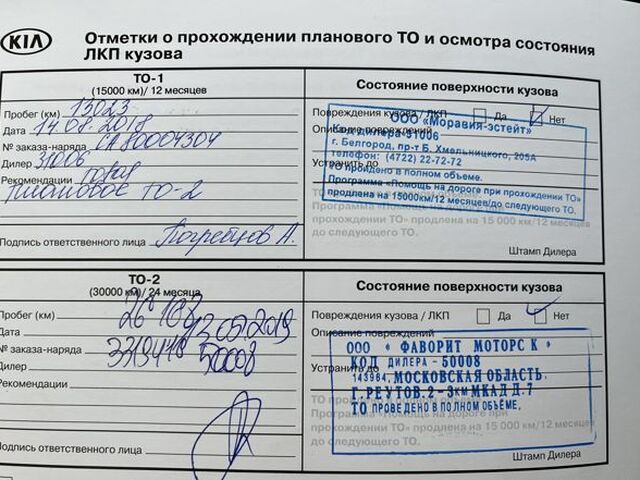 KIA
Отметки о прохождении планового ТО и осмотра состояния
ЛКП кузова
ТО-1
(15000 км)/ 12 месяцев
Состояние поверхности кузова
Пробег (км) 13023
Дата 14.08.2018
№ заказа-наряда СА80004304
Дилер 31006
Рекомендации
плановое ТО-2
Подпись ответственного лица
Повреждения кузова / ЛКП Да Нет
Описание повреждений
Устранить до
ООО «Моравия-эстейт»
Код дилера-31006
г. Белгород, пр-т Б. Хмельницкого, 205А
Телефон: (4722) 22-72-72
ТО пройдено в полном объеме.
Программа «Помощь на дороге при прохождении ТО»
продлена на 15000км/12 месяцев/до следующего ТО.
прохождении ТО» продлена на 15 000 км/12 месяцев/
до следующего ТО.
Штамп Дилера
ТО-2
(30000 км)/ 24 месяца
Состояние поверхности кузова
Пробег (км)
Дата 12.05.2019
№ заказа-наряда
Дилер 50008
Рекомендации
Подпись ответственного лица
Повреждения кузова / ЛКП Да Нет
Описание повреждений
Устранить до
ООО « ФАВОРИТ МОТОРС К »
КОД ДИЛЕРА - 50008
143964, МОСКОВСКАЯ ОБЛАСТЬ.
Г.РЕУТОВ.2 - 3км МКАД Д.7
ТО ПРОВЕДЕНО В ПОЛНОМ ОБЪЕМЕ.
Программа «Помощь на дороге при
прохождении ТО» продлена на 15 000 км/12 месяцев/
до следующего ТО.
Штамп Дилера